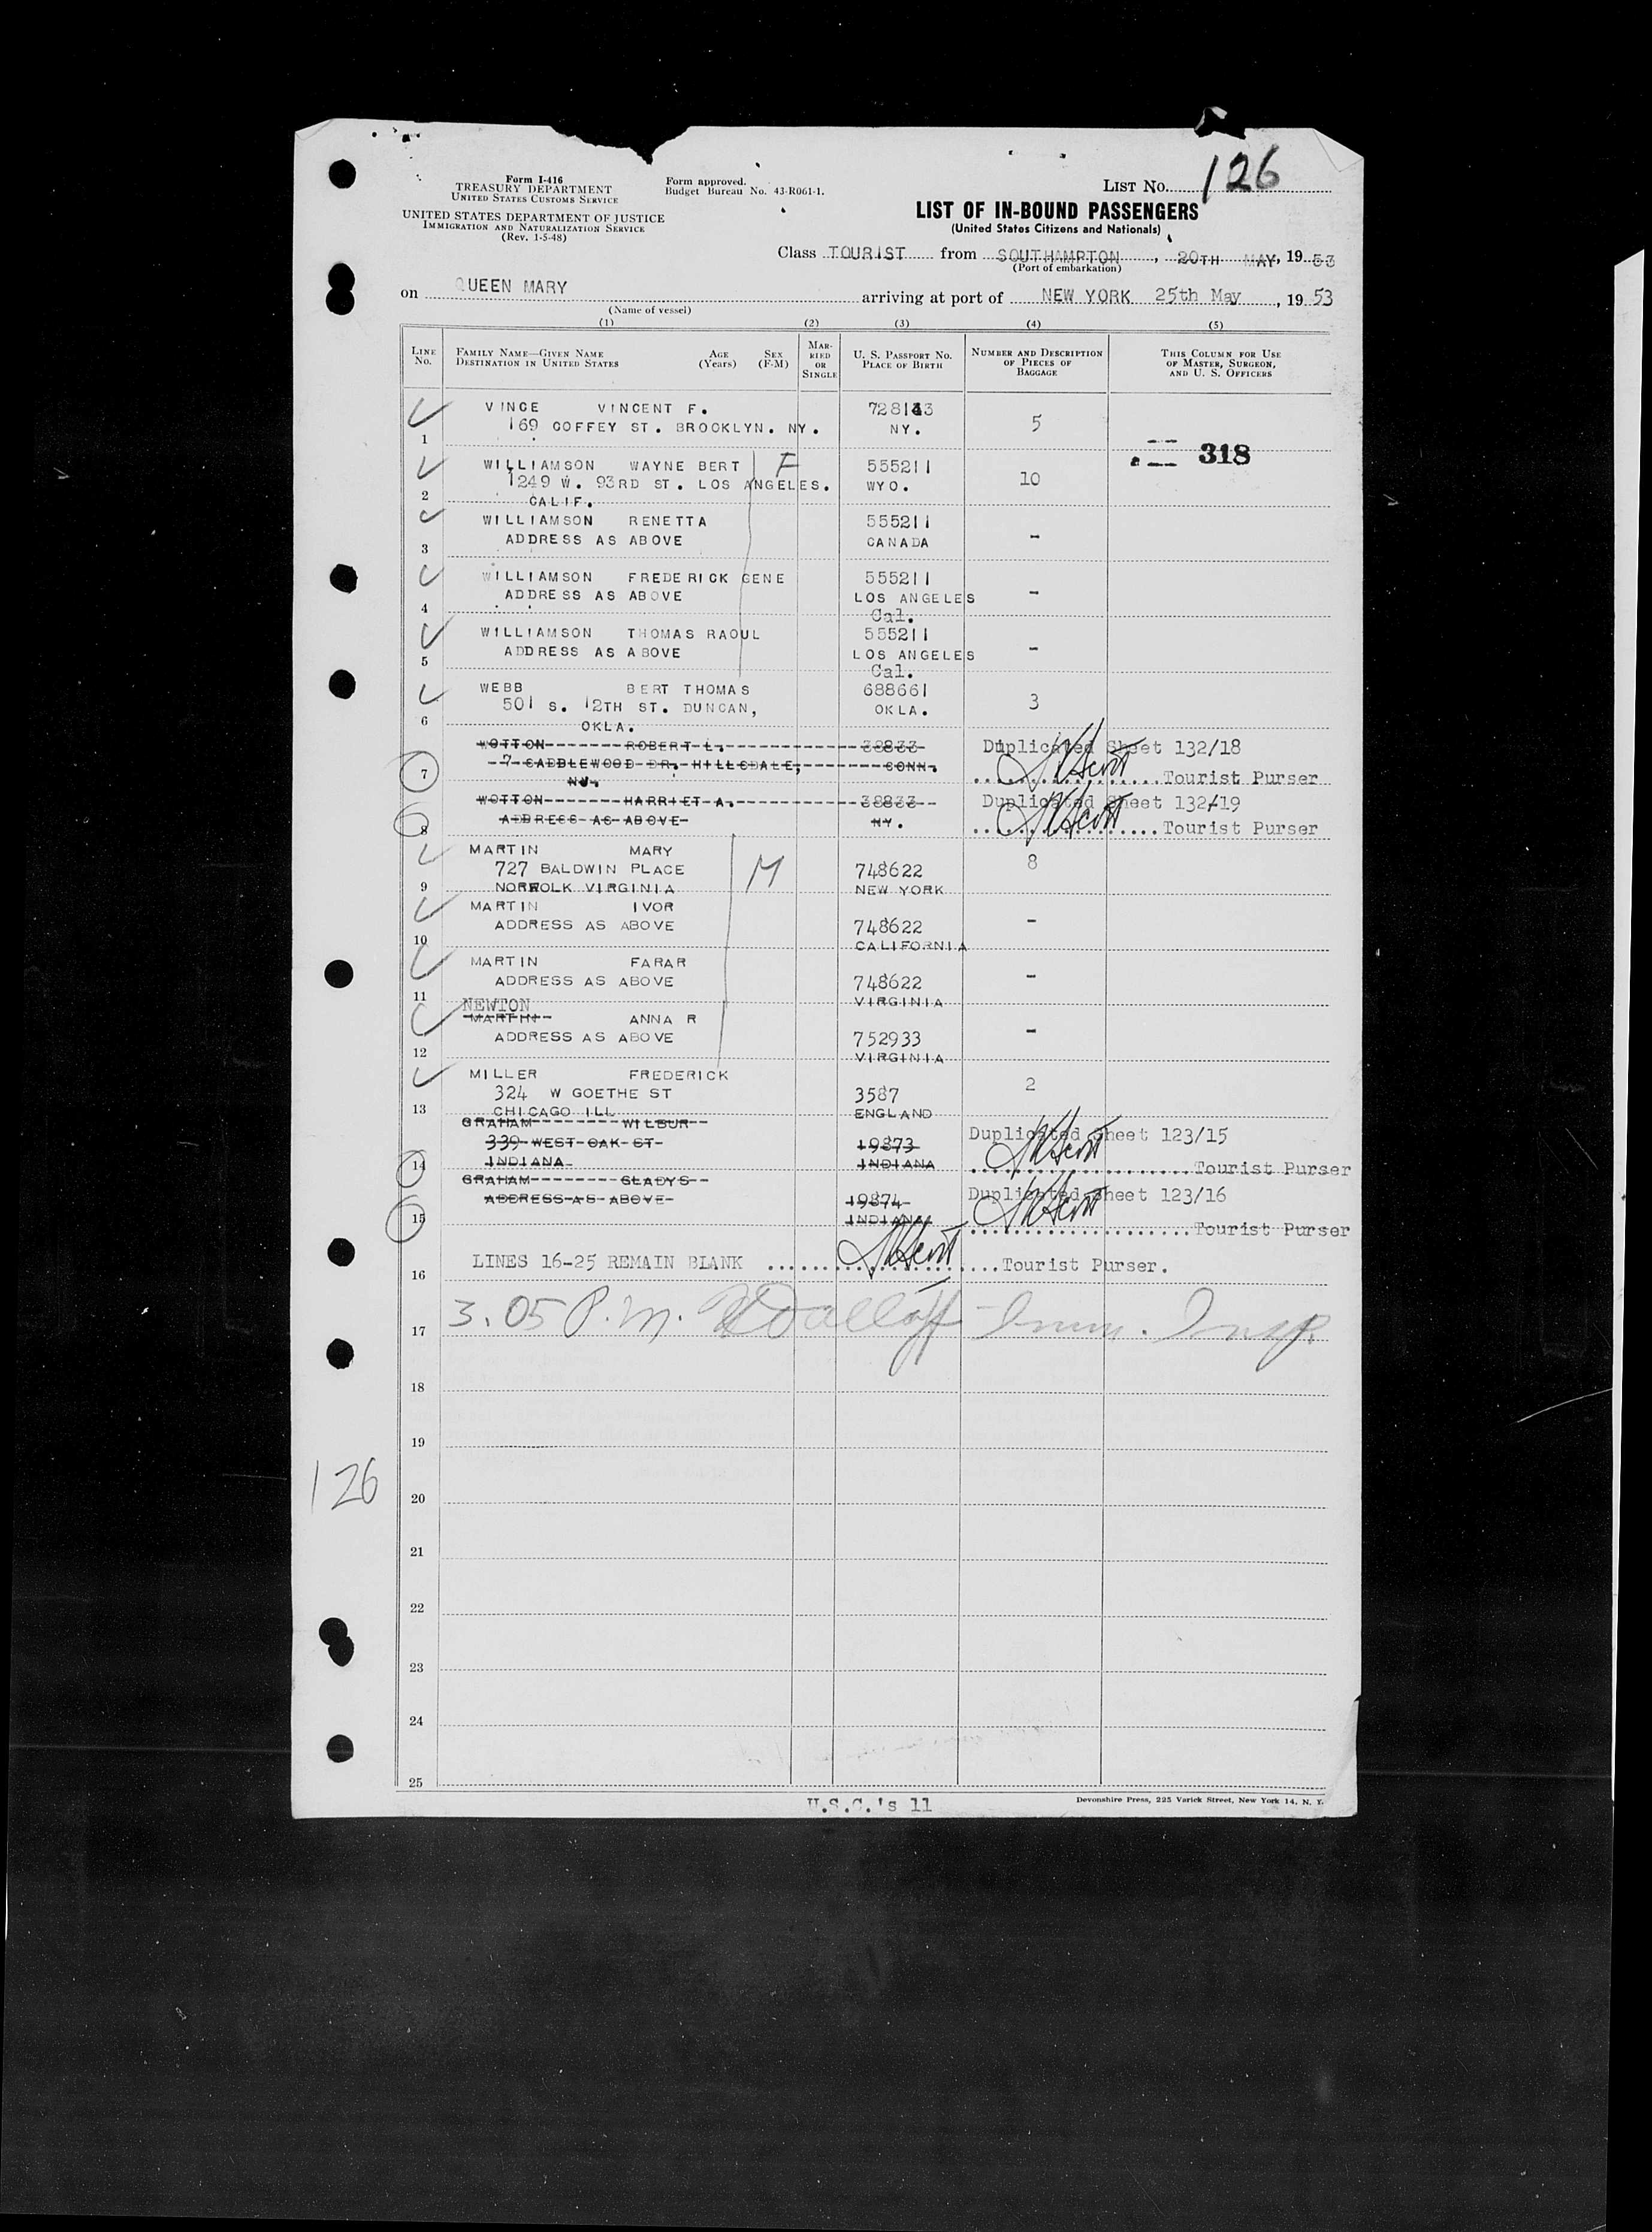 Form I-416
TREASURY DEPARTMENT
UNITED STATES CUSTOMS SERVICE
UNITED STATES DEPARTMENT OF JUSTICE
IMMIGRATION AND NATURALIZATION SERVICE
(Rev. 1-5-48)
Form approved.
Budget Bureau No. 43-R061-1.
LIST NO. 126
LIST OF IN-BOUND PASSENGERS
(United States Citizens and Nationals)
Class TOURIST from SOUTHAMPTON, 20TH MAY, 1953
(Port of embarkation)
on QUEEN MARY arriving at port of NEW YORK 25th May, 1953
(Name of vessel)
(1) (2) (3) (4) (5)
LINE NO. FAMILY NAME—GIVEN NAME DESTINATION IN UNITED STATES AGE (Years) SEX (F-M) MARRIED OR SINGLE U. S. PASSPORT NO. PLACE OF BIRTH NUMBER AND DESCRIPTION OF PIECES OF BAGGAGE THIS COLUMN FOR USE OF MASTER, SURGEON, AND U. S. OFFICERS
VINCE VINCENT F. 728143
169 COFFEY ST. BROOKLYN. NY. NY. 5
1
318
WILLIAMSON WAYNE BERT F 555211
1249 W. 93RD ST. LOS ANGELES. WYO. 10
2 CALIF.
WILLIAMSON RENETTA 555211
ADDRESS AS ABOVE CANADA -
3
WILLIAMSON FREDERICK GENE 555211
ADDRESS AS ABOVE LOS ANGELES -
4 Cal.
WILLIAMSON THOMAS RAOUL 555211
ADDRESS AS ABOVE LOS ANGELES -
5 Cal.
WEBB BERT THOMAS 688661
501 S. 12TH ST. DUNCAN, OKLA. 3
6 OKLA.
WOTTON ROBERT L. 38833 Duplicated Sheet 132/18
7 CADDLEWOOD DR. HILLSDALE, CONN.
7 NJ. Tourist Purser
WOTTON HARRIET A. 38833 Duplicated Sheet 132/19
8 ADDRESS AS ABOVE NY. Tourist Purser
MARTIN MARY 8
727 BALDWIN PLACE M 748622
9 NORFOLK VIRGINIA NEW YORK
MARTIN IVOR
ADDRESS AS ABOVE 748622 -
10 CALIFORNIA
MARTIN FARAR
ADDRESS AS ABOVE 748622 -
11 VIRGINIA
NEWTON
MARTIN ANNA R
ADDRESS AS ABOVE 752933 -
12 VIRGINIA
MILLER FREDERICK 2
324 W GOETHE ST 3587
13 CHICAGO ILL ENGLAND
GRAHAM WILBUR Duplicated Sheet 123/15
339 WEST OAK ST 19873
14 INDIANA INDIANA Tourist Purser
GRAHAM GLADYS Duplicated Sheet 123/16
ADDRESS AS ABOVE 19874
15 INDIANA Tourist Purser
LINES 16-25 REMAIN BLANK Tourist Purser.
16
17 3.05 P.M. Imm. Insp.
18
19
126
20
21
22
23
24
25
U.S.C.'s 11
Devonshire Press, 225 Varick Street, New York 14, N. Y.